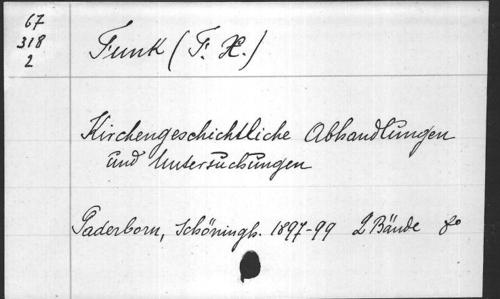 67
318
2
Funk (F. X.)
Kirchengeschichtliche Abhandlungen
und Untersuchungen
Paderborn, Schöningh. 1897-99 2 Bände 8o